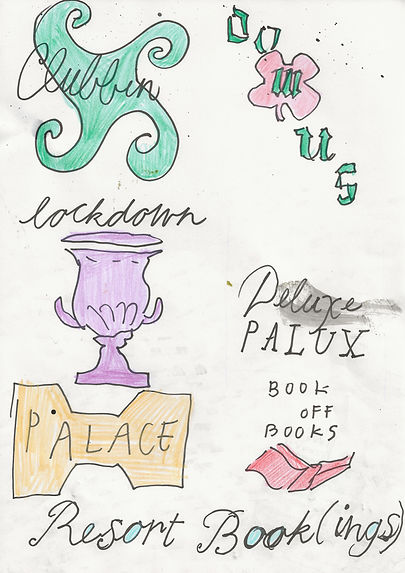 Clubbin
DOMUS
lockdown
Deluxe
PALUX
BOOK
OFF
BOOKS
PALACE
Resort Book(ings)